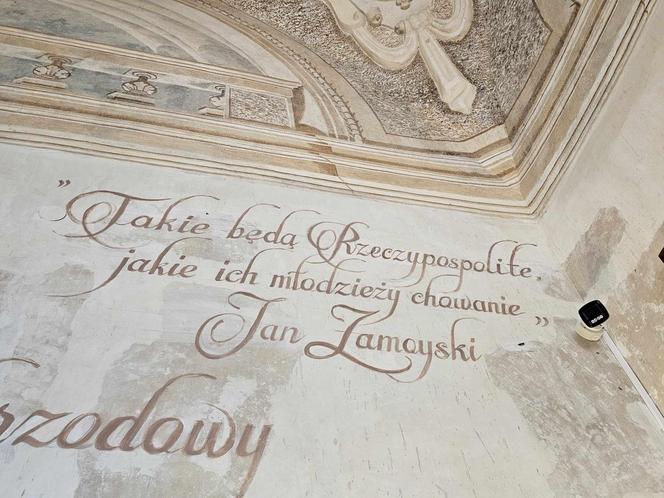 „Takie będą Rzeczypospolite,
jakie ich młodzieży chowanie”
Jan Zamoyski